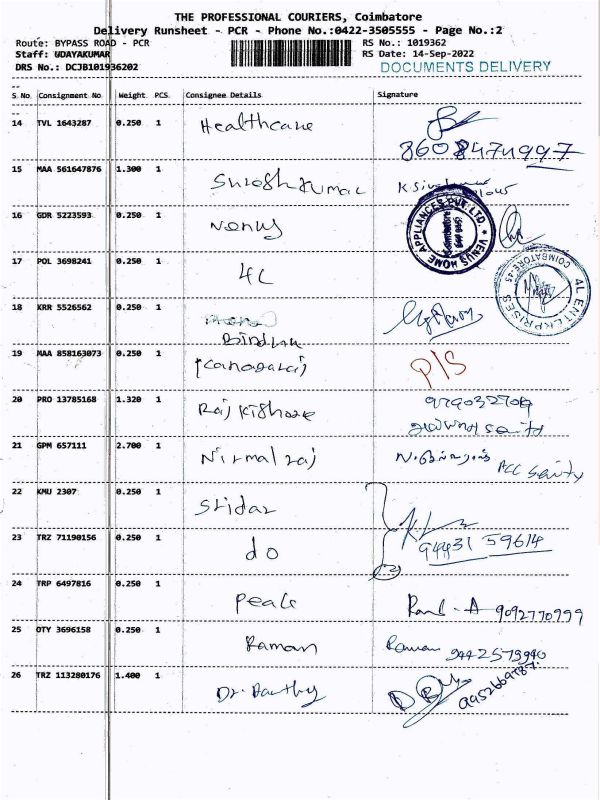 THE PROFESSIONAL COURIERS, Coimbatore
Delivery Runsheet - PCR - Phone No.:0422-3505555 - Page No.:2
Route: BYPASS ROAD - PCR
RS No.: 1019362
Staff: UDAYAKUMAR
RS Date: 14-Sep-2022
DRS No.: DCJB101936202
DOCUMENTS DELIVERY
S. No Consignment No Weight PCS. Consignee Details Signature
14 TVL 1643287 0.250 1 Healthcare
15 MAA 561647876 1.300 1 Sureshkumar
16 GDR 5223593 0.250 1 Venus
VENUS HOME APPLIANCES PVT. LTD.
17 POL 3698241 0.250 1 4L
4L ENTERPRISES COIMBATORE-45
18 KRR 5526562 0.250 1
Bindhu
19 MAA 858163073 0.250 1 Kanagaraj P/S
20 PRO 13785168 1.320 1 Raj Kishore
21 GPM 657111 2.700 1 Nirmal raj
22 KMU 2307 0.250 1 Sridar
23 TRZ 71190156 0.250 1 do 94431 59614
24 TRP 6497816 0.250 1 Peals 9092770999
25 OTY 3696158 0.250 1 Raman Raman
26 TRZ 113280176 1.400 1